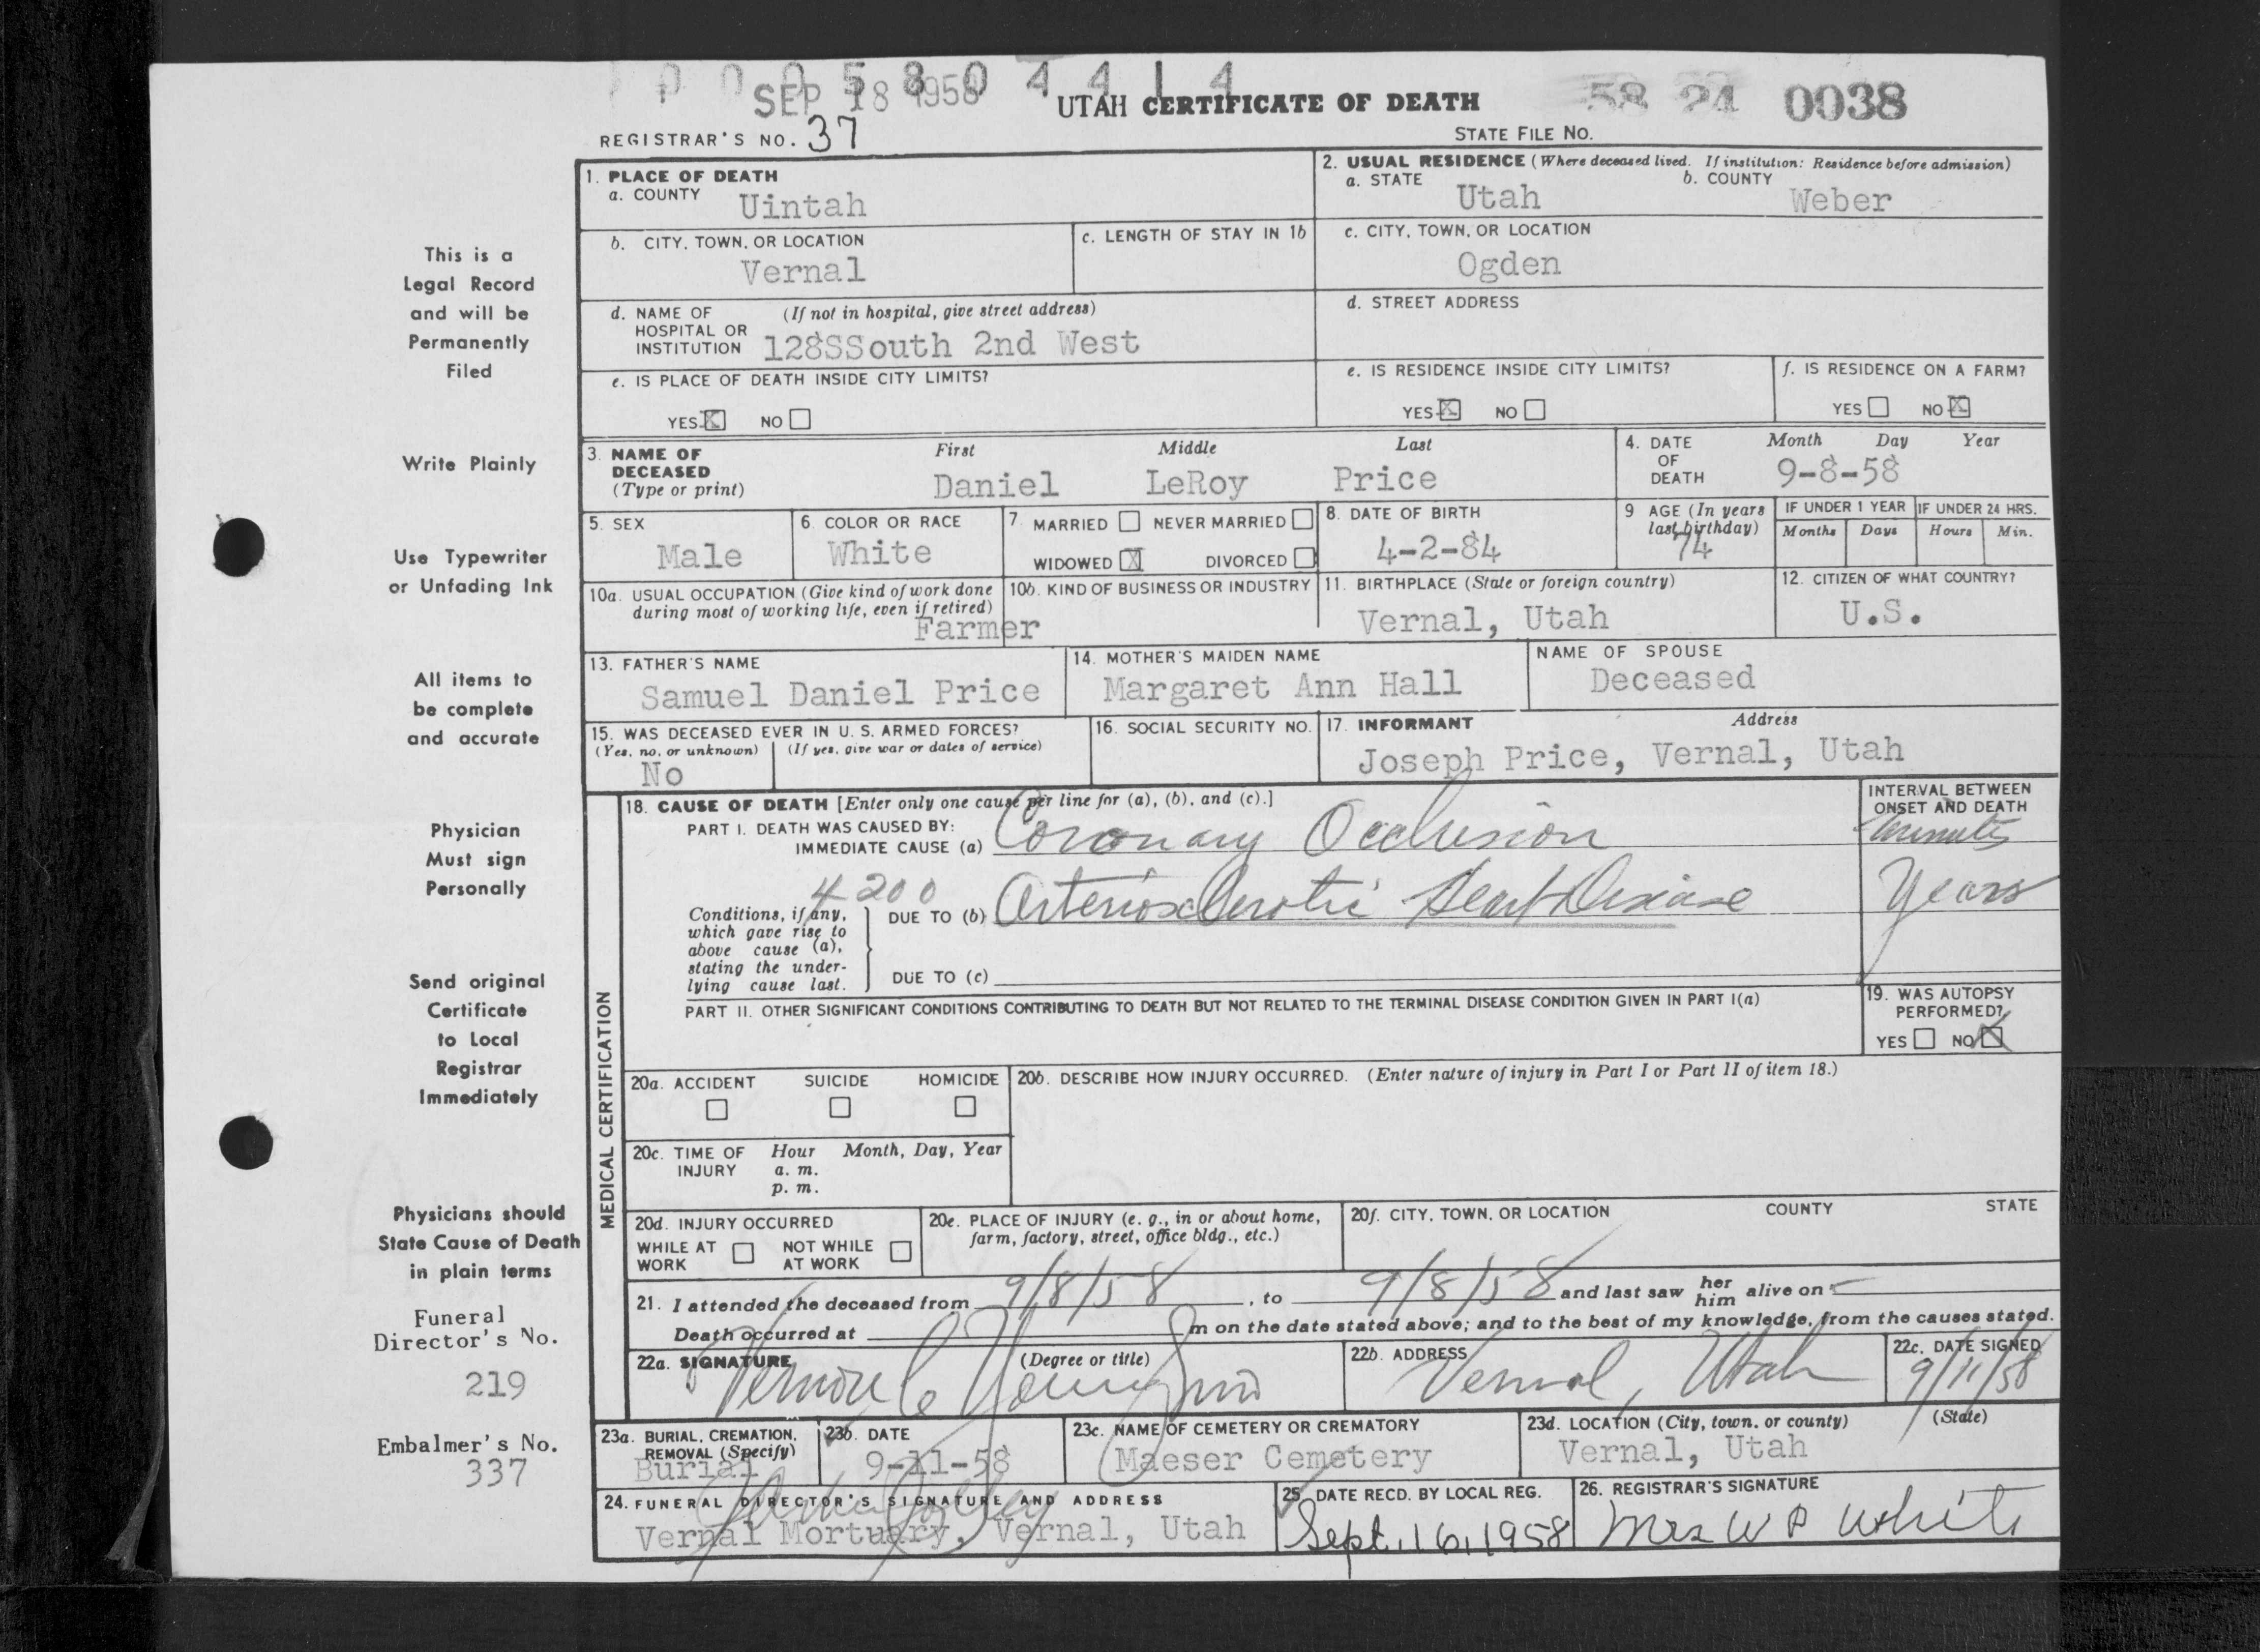 00058 04414
SEP 18 1958
UTAH CERTIFICATE OF DEATH
58 24 0038
REGISTRAR'S NO. 37
STATE FILE NO.
1. PLACE OF DEATH
a. COUNTY Uintah
2. USUAL RESIDENCE (Where deceased lived. If institution: Residence before admission)
a. STATE Utah b. COUNTY Weber
b. CITY, TOWN, OR LOCATION Vernal
c. LENGTH OF STAY IN 1b
c. CITY, TOWN, OR LOCATION Ogden
d. NAME OF HOSPITAL OR INSTITUTION (If not in hospital, give street address)
128SSouth 2nd West
d. STREET ADDRESS
e. IS PLACE OF DEATH INSIDE CITY LIMITS?
YES X NO
e. IS RESIDENCE INSIDE CITY LIMITS?
YES X NO
f. IS RESIDENCE ON A FARM?
YES NO X
3. NAME OF DECEASED (Type or print)
First Middle Last
Daniel LeRoy Price
4. DATE OF DEATH Month Day Year
9-8-58
5. SEX Male
6. COLOR OR RACE White
7. MARRIED NEVER MARRIED
WIDOWED X DIVORCED
8. DATE OF BIRTH 4-2-84
9 AGE (In years last birthday) 74
IF UNDER 1 YEAR Months Days
IF UNDER 24 HRS. Hours Min.
10a. USUAL OCCUPATION (Give kind of work done during most of working life, even if retired) Farmer
10b. KIND OF BUSINESS OR INDUSTRY
11. BIRTHPLACE (State or foreign country) Vernal, Utah
12. CITIZEN OF WHAT COUNTRY? U.S.
13. FATHER'S NAME Samuel Daniel Price
14. MOTHER'S MAIDEN NAME Margaret Ann Hall
NAME OF SPOUSE Deceased
15. WAS DECEASED EVER IN U. S. ARMED FORCES?
(Yes, no, or unknown) (If yes, give war or dates of service)
No
16. SOCIAL SECURITY NO.
17. INFORMANT Address
Joseph Price, Vernal, Utah
MEDICAL CERTIFICATION
18. CAUSE OF DEATH [Enter only one cause per line for (a), (b), and (c).]
INTERVAL BETWEEN ONSET AND DEATH
PART I. DEATH WAS CAUSED BY:
IMMEDIATE CAUSE (a) Coronary Occlusion minutes
4200
Conditions, if any, which gave rise to above cause (a), stating the underlying cause last.
DUE TO (b) Arteriosclerotic Heart Disease Years
DUE TO (c)
PART II. OTHER SIGNIFICANT CONDITIONS CONTRIBUTING TO DEATH BUT NOT RELATED TO THE TERMINAL DISEASE CONDITION GIVEN IN PART I(a)
19. WAS AUTOPSY PERFORMED?
YES NO X
20a. ACCIDENT SUICIDE HOMICIDE
20b. DESCRIBE HOW INJURY OCCURRED. (Enter nature of injury in Part I or Part II of item 18.)
20c. TIME OF INJURY Hour Month, Day, Year
a. m.
p. m.
20d. INJURY OCCURRED
WHILE AT WORK NOT WHILE AT WORK
20e. PLACE OF INJURY (e. g., in or about home, farm, factory, street, office bldg., etc.)
20f. CITY, TOWN, OR LOCATION COUNTY STATE
21. I attended the deceased from 9/8/58, to 9/8/58 and last saw her him alive on -
Death occurred at m on the date stated above; and to the best of my knowledge, from the causes stated.
22a. SIGNATURE (Degree or title)
Vernon C Young MD
22b. ADDRESS
Vernal, Utah
22c. DATE SIGNED
9/11/58
23a. BURIAL, CREMATION, REMOVAL (Specify) Burial
23b. DATE 9-11-58
23c. NAME OF CEMETERY OR CREMATORY Maeser Cemetery
23d. LOCATION (City, town, or county) (State)
Vernal, Utah
24. FUNERAL DIRECTOR'S SIGNATURE AND ADDRESS
Vernal Mortuary, Vernal, Utah
25. DATE RECD. BY LOCAL REG.
Sept. 16, 1958
26. REGISTRAR'S SIGNATURE
Mrs W P White
This is a
Legal Record
and will be
Permanently
Filed
Write Plainly
Use Typewriter
or Unfading Ink
All items to
be complete
and accurate
Physician
Must sign
Personally
Send original
Certificate
to Local
Registrar
Immediately
Physicians should
State Cause of Death
in plain terms
Funeral
Director's No.
219
Embalmer's No.
337